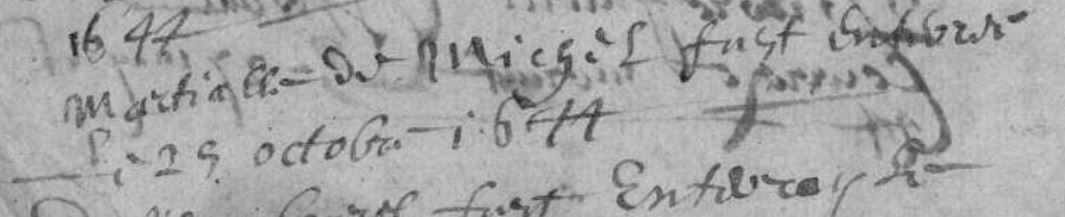 1644
Martialle de Michel fust enterré
le 25 octobre 1644
fust Enterrey le